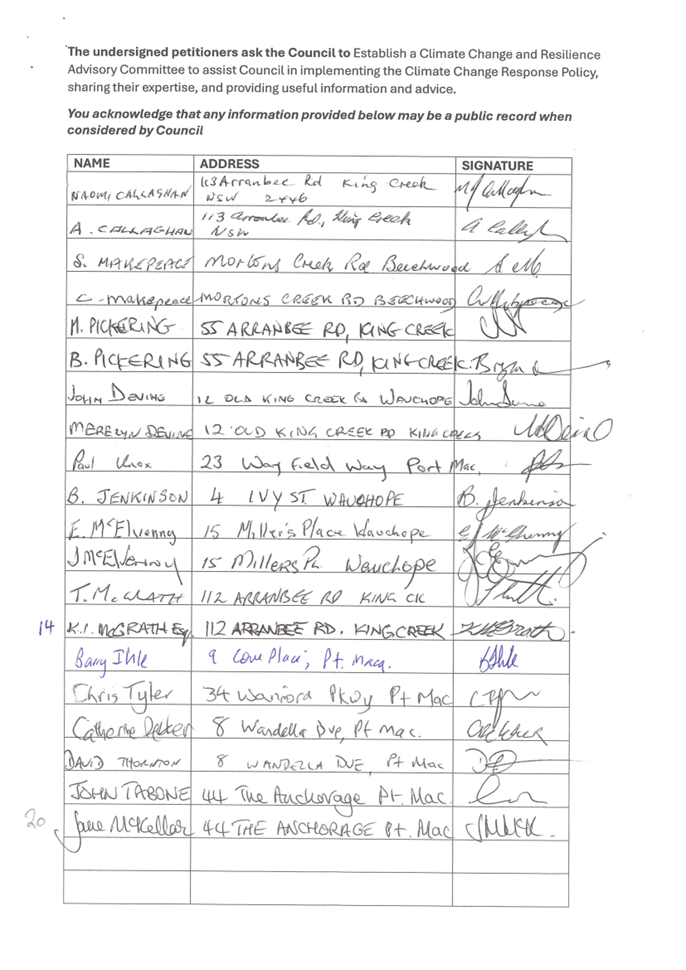 The undersigned petitioners ask the Council to Establish a Climate Change and Resilience
Advisory Committee to assist Council in implementing the Climate Change Response Policy,
sharing their expertise, and providing useful information and advice.
You acknowledge that any information provided below may be a public record when
considered by Council
NAME ADDRESS SIGNATURE
NAOMI CALLAGHAN 113 Arranbee Rd King Creek
NSW 2446
A. CALLAGHAN 113 Arranbee Rd, King Creek
NSW
S. MAKEPEACE Mortons Creek Rd Beechwood
C. makepeace MORTONS CREEK RD BEECHWOOD
M. PICKERING 55 ARRANBEE RD, KING CREEK
B. PICKERING 55 ARRANBEE RD, KING CREEK.
JOHN DEVINE 12 OLD KING CREEK RD WAUCHOPE
MERELYN DEVINE 12 OLD KING CREEK RD KING
Paul Knox 23 Way Field Way Port Mac,
B. JENKINSON 4 IVY ST. WAUCHOPE B. Jenkinson
E. McElvenny 15 Miller's Place Wauchope
J McElvenny 15 Millers PL. Wauchope
T. McGRATH 112 ARRANBEE RD KING CK
14 K.I. McGRATH 112 ARRANBEE RD. KING CREEK
Barry Ihle 9 Place, Pt. Macq.
Chris Tyler 34 Waniora Pkwy Pt Mac
Catherine 8 Wandella Dve, Pt Mac.
DAVID THORNTON 8 WANDELLA DVE, Pt Mac
JOHN TABONE 44 The Anchorage Pt. Mac.
20 Jane McKellar 44 THE ANCHORAGE Pt. Mac